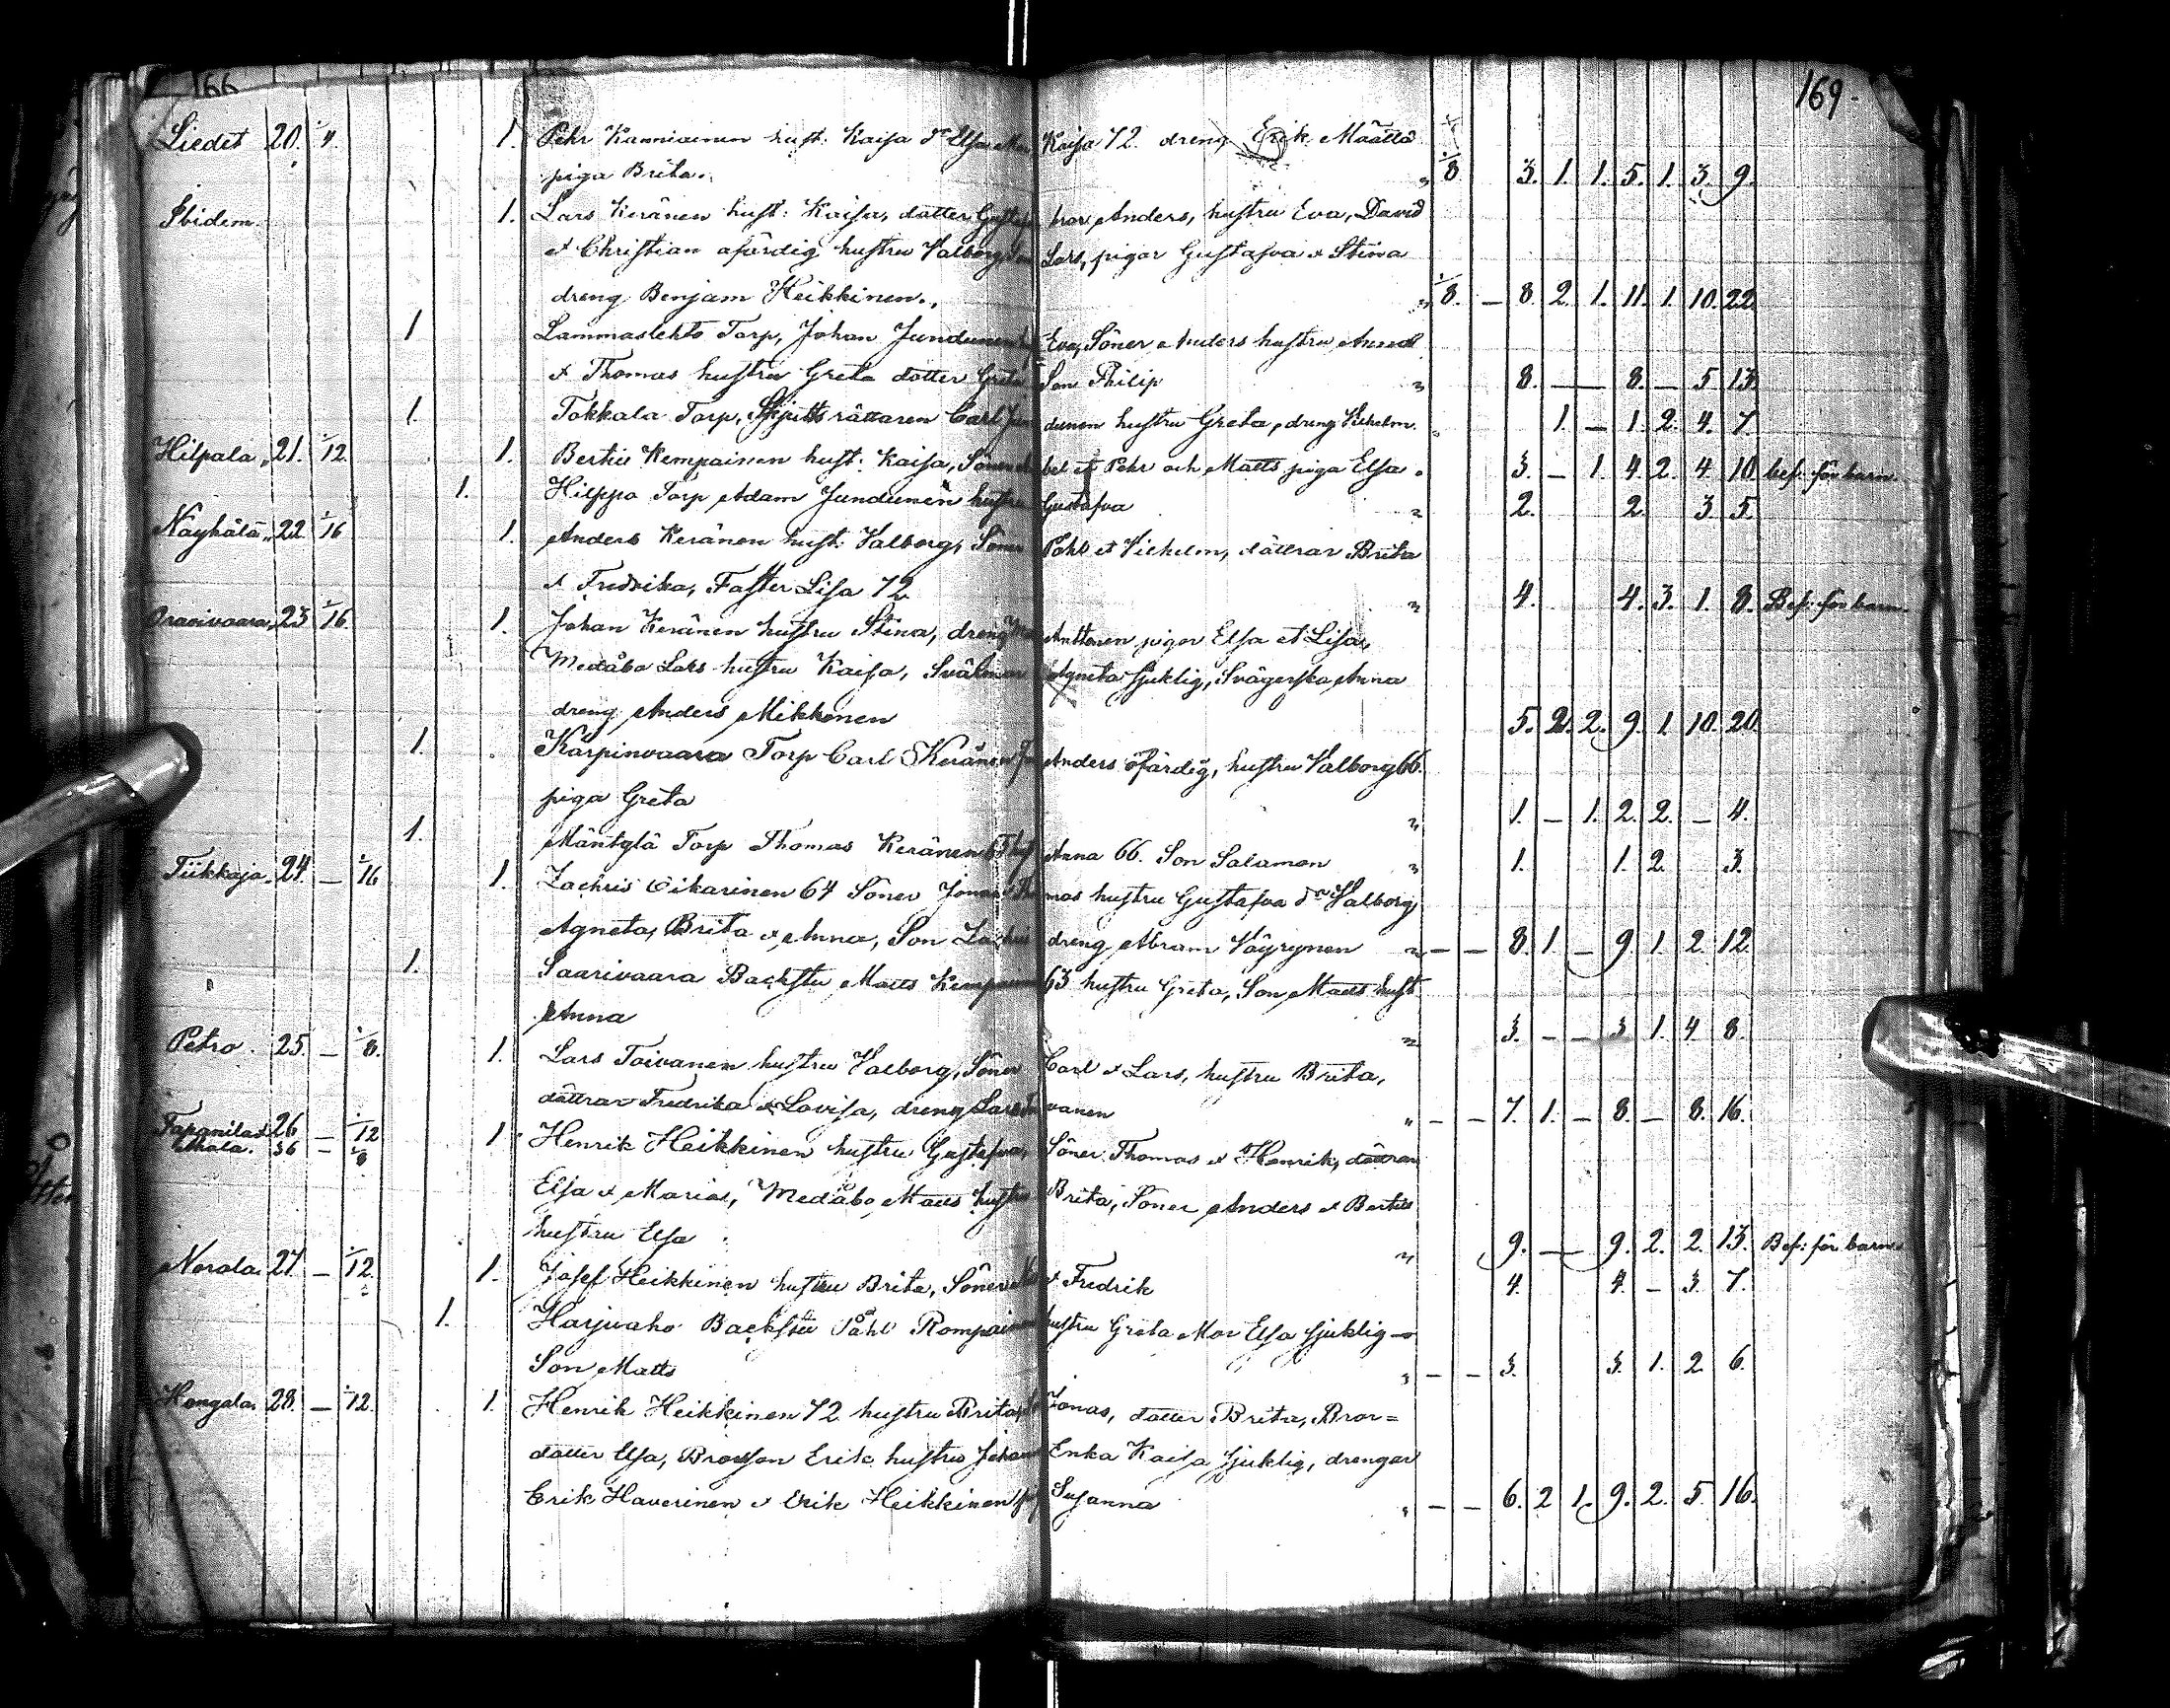 166 169.
Liedet 20. 4. 1. Pehr Kanniainen hust. Kaisa dr Elsa Kaisa 72. dreng Erik Määttä
piga Brita. 8 3. 1. 1. 5. 1. 3. 9.
Ibidem. 1. Lars Keränen hust: Kaisa, dotter Anders, hustru Eva, David
et Christian ofärdig hustru Valborg Lars, pigor Gustafva & Stina
dreng Benjam Heikkinen. 8. – 8. 2. 1. 11. 1. 10. 22.
1 Lammaslehto Torp, Johan Jundunen Eva, Söner Anders hustru Anna
& Thomas hustru Greta dotter Greta Son Philip 8. — 8. – 5 13.
1. Tokkala Torp, Skjutts rättaren Carl Jundunen hustru Greta, dreng Vilhelm. 1. – 1. 2. 4. 7.
Hilpala 21. 12. 1. Bertil Kempainen hust. Kaisa, Söner et Pehr och Matts piga Elsa 3. – 1. 4. 2. 4. 10. bef: för barn.
1. Hilppa Torp Adam Jundunen hustru Gustafva 2. 2. 3. 5.
Näyhälä 22. 16 1. Anders Keränen hust: Valborg, Söner Påhl et Vilhelm, döttrar Brita
& Fredrika, Faster Lisa 72. 4. 4. 3. 1. 8. Bef: för barn.
Oraoivaara 23 16 1. Johan Keränen hustru Stina, dreng Anttonen pigor Elsa et Lisa,
Medåbo Lars hustru Kaisa, Svärmor Agneta sjuklig, Svägerska Anna
dreng Anders Mikkonen 5. 2. 2. 9. 1. 10. 20.
1. Kärpinvaara Torp Carl Keränen Anders ofärdig, hustru Valborg 66.
piga Greta 1. – 1. 2. 2. – 4.
1. Mäntylä Torp Thomas Keränen Anna 66. Son Salamon 1. 1. 2. 3.
Tiikkaja 24. – 16 1. Zachris Oikarinen 64 Söner Jonas Thomas hustru Gustafva dr Valborg,
Agneta, Brita & Anna, Son Zachris dreng Abram Väyrynen – – 8. 1. – 9. 1. 2. 12.
1. Saarivaara Backstu Matts Kempainen 63 hustru Greta, Son Matts hust
Anna 3. – – 3 1. 4 8.
Petro. 25. – 8. 1. Lars Toivanen hustru Valborg, Söner Carl & Lars, hustru Brita,
döttrar Fredrika & Lovisa, dreng Lars Toivanen – – 7. 1. – 8. – 8. 16.
Tapanila 26 – 12 1. Henrik Heikkinen hustru Gustafva, Söner Thomas & Henrik, döttrar
36 – 8
Elsa & Maria, Medåbo Matts hustru Brita, Söner Anders & Bertil
hustru Elsa 9. — 9. 2. 2. 13. Bef: för barn.
Norola. 27 – 12. 1. Josef Heikkinen hustru Brita, Söner & Fredrik 4. 4. – 3. 7.
1. Harjuaho Backstu Påhl Rompainen hustru Greta Mor Elsa sjuklig
Son Matts – – 3. 3. 1. 2 6.
Kangala. 28. – 12. 1. Henrik Heikkinen 72 hustru Brita, Jonas, dotter Brita, Bror=
dotter Elsa, Brorson Erik hustru Johanna Enka Kaisa sjuklig, drengar
Erik Haverinen & Erik Heikkinen Susanna – – 6. 2 1. 9. 2. 5. 16.